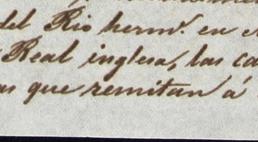 del Rio herm.º en e
Real inglesa, las ca
as que remitan á